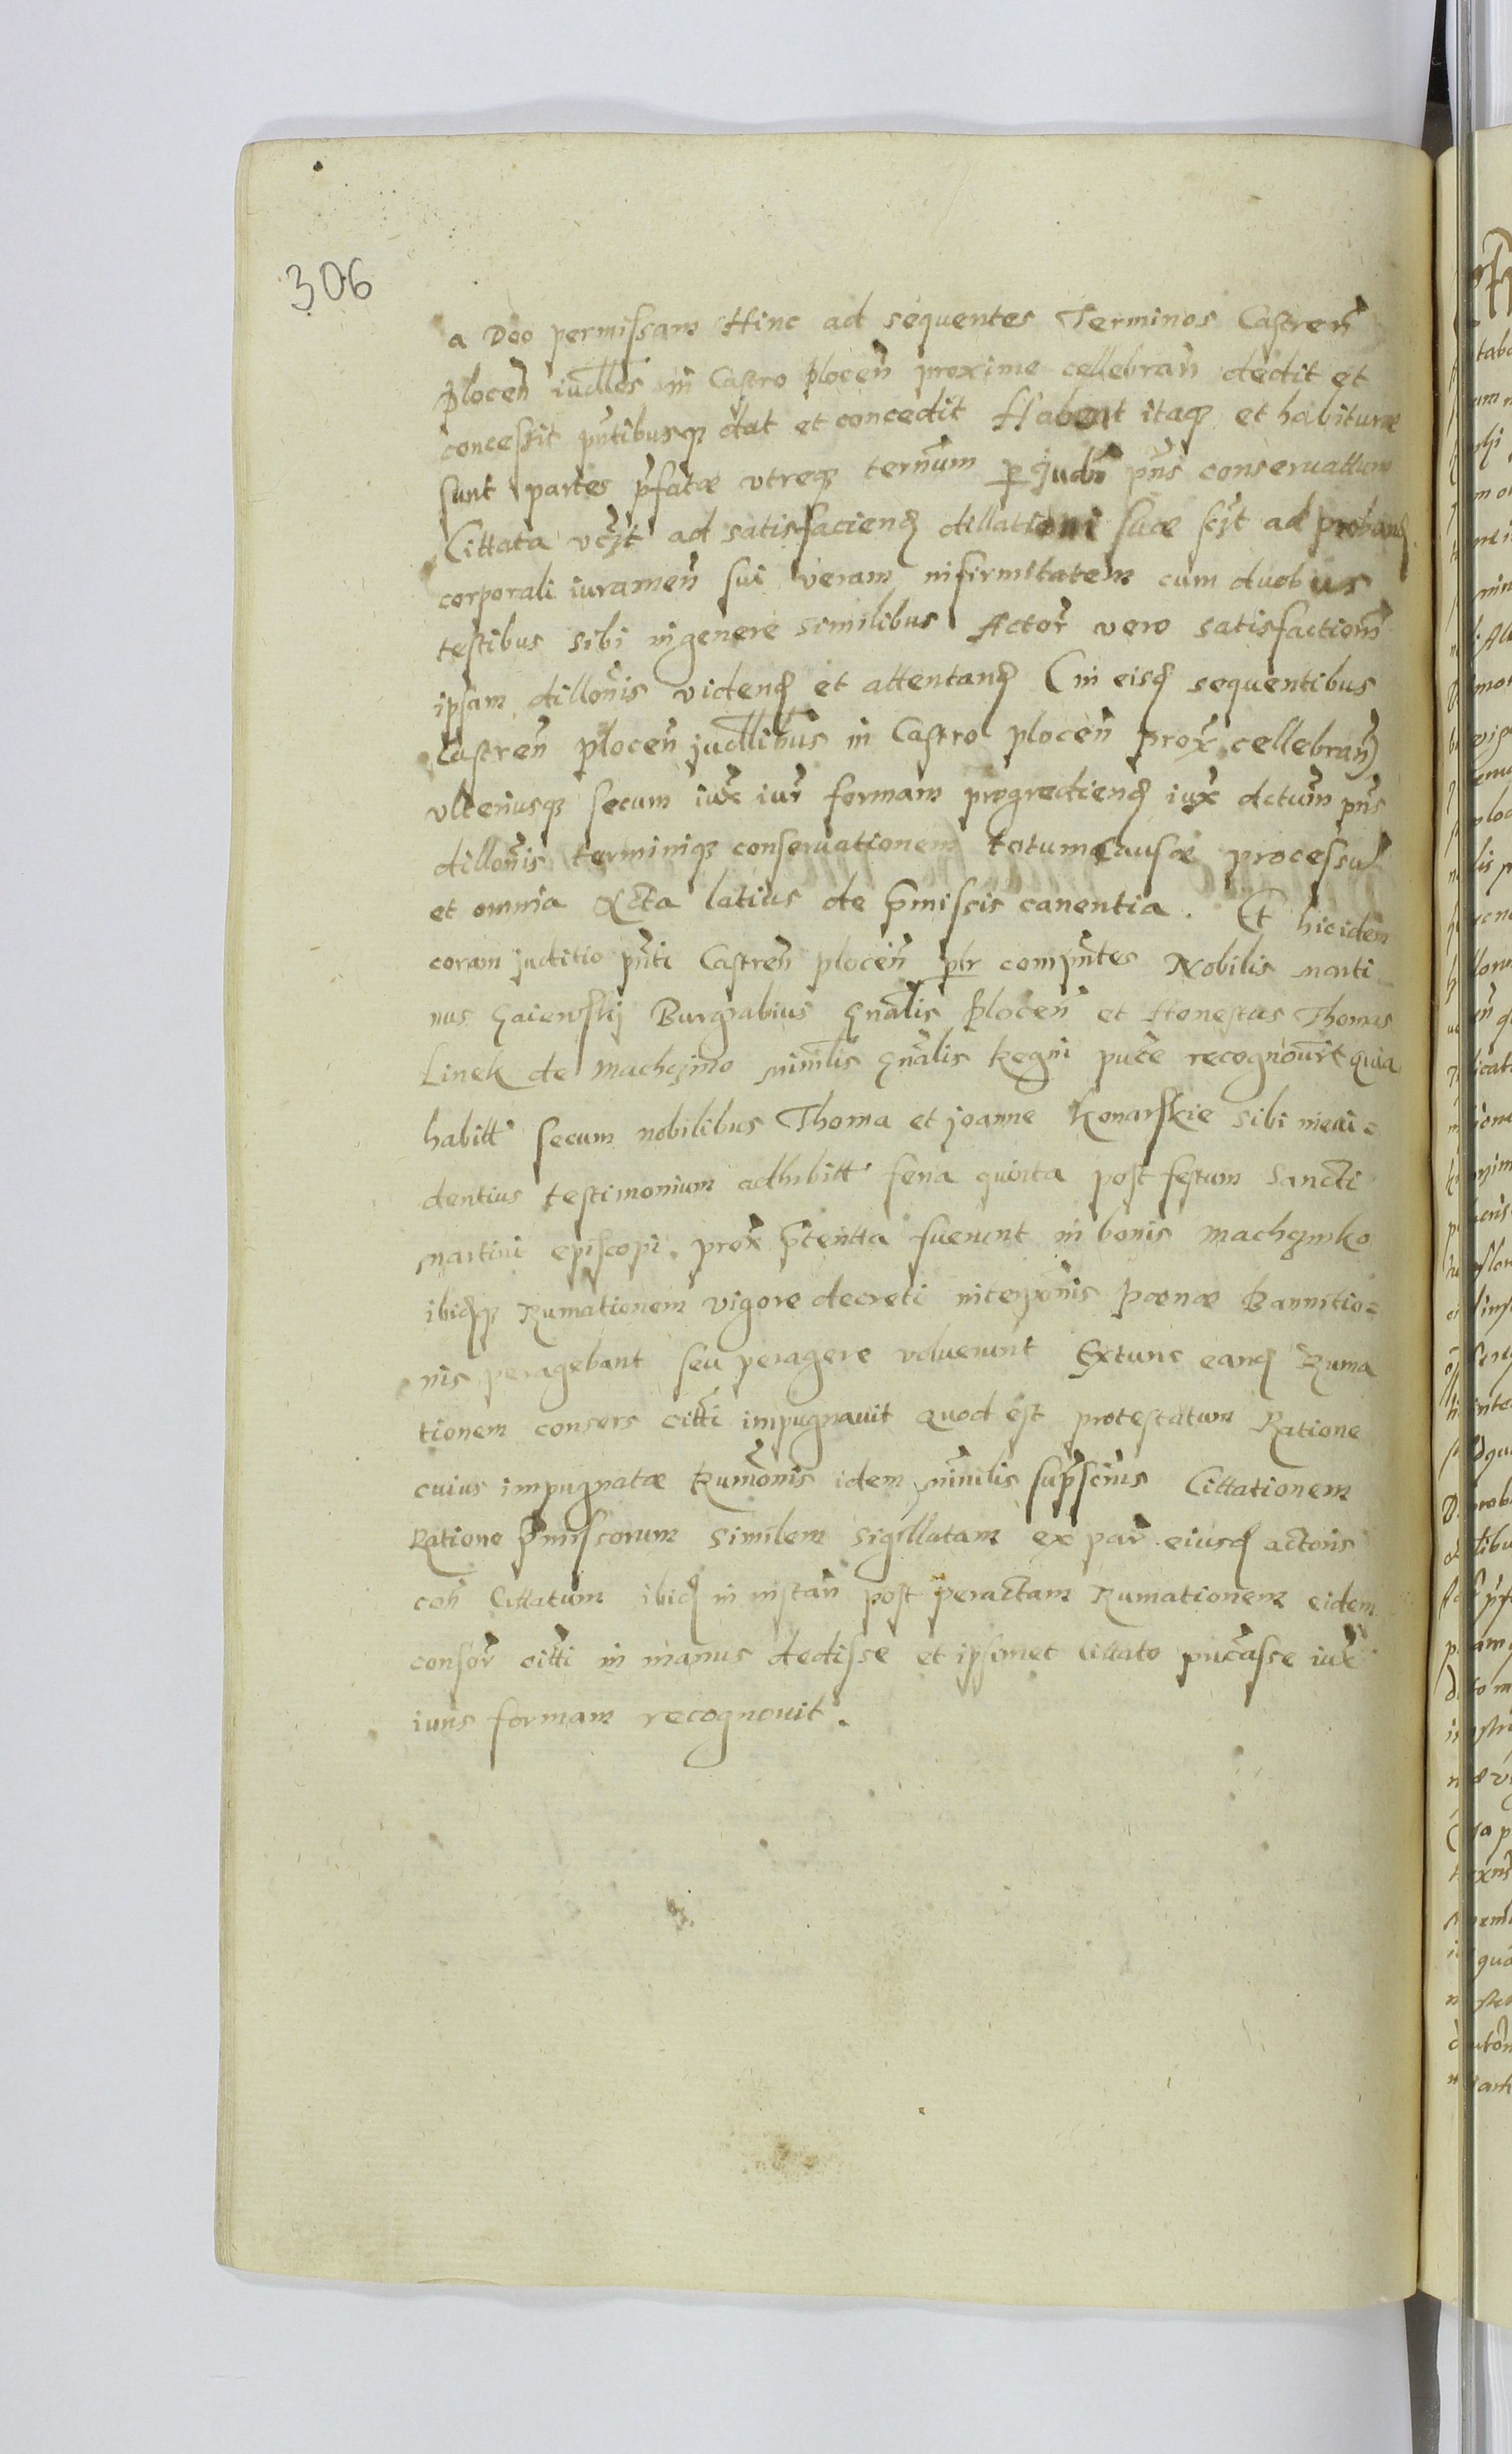 306
a Deo permissam Hinc ad sequentes Terminos Castreñ
Plocen̄ iudlles in Castro Plocen̄ proxime cellebran̄ dedit et
concessit pn̄tibusq₃ dat et concedit Habent itaq₃ et habituræ
sunt partes p̄fatæ vtreq₃ ternūm per Judm̄ pn̄s conseruattum
Cittata vc̄zt ad satisfaciend dillationi suæ sc̄zt ad proband
corporali iuramen̄ sui veram infirmitatem cum duobus
testibus sibi in genere similibus Actor̄ vero satisfactionē
ipsam dillon̄is vidend et attentand (in eisd sequentibus
Castren̄ plocen̄ judllibus in Castro plocen̄ prox̄ cellebran̄)
vlteriusq₃ secum iux̄ iur̄ formam progrediend iux̄ actum̄ pn̄s
dillon̄is terminiq₃ conseruationem totum causæ processū
et omnia acta latius de p̄missis canentia. Et hic idem
coram juditio pn̄ti Castren̄ plocen̄ plr compn̄tes Nobilis Marti
nus Gaiewskij Burgrabius Gn̄alis Plocen̄ et Honestus Thomas
Linek de Machczino min̄ilis Gn̄alis Regni puc̄e recognouit quia
habitt' secum nobilibus Thoma et Joanne Konarskie sibi in eui=
dentius testimonium adhibitt' feria quinta post festum Sancti
Martini episcopi prox̄ p̄teritta fuerunt in bonis Machczinko
ibidq₃ Rumationem vigore decreti interpon̄is poenæ Bannitio=
nis peragebant seu peragere voluerunt Extunc eand Ruma
tionem consors citti impugnauit quod est protestatum Ratione
cuius impugnatæ Rumon̄is idem min̄ilis supsc̄rius Cittationem
Ratione p̄missorum similem sigillatam ex par̄ eiusd actoris
con̄ Cittatum ibid in instan̄ post peractam Rumationem eidem
consor̄ citti in manus dedisse et ipsimet Cittato puc̄asse iux̄
iuris formam recognouit.